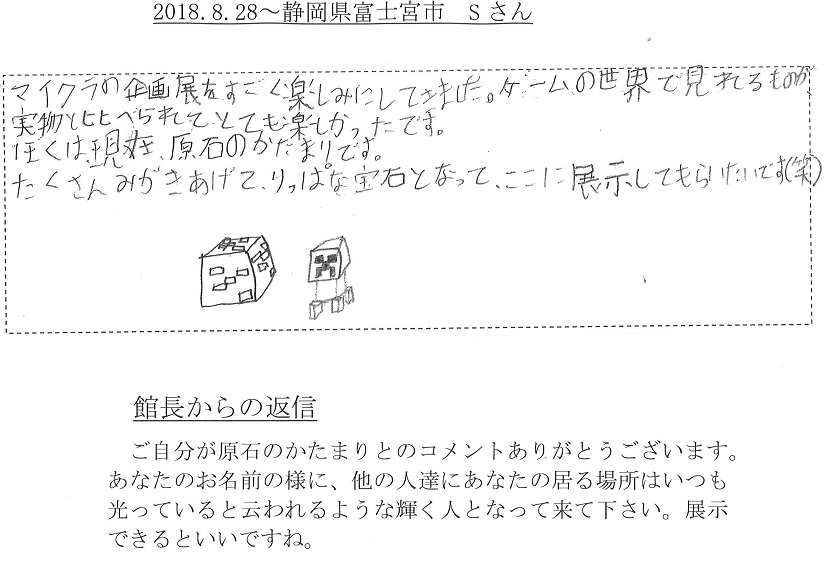 2018.8.28～静岡県富士宮市　Sさん
マイクラの企画展をすごく楽しみにしてきました。ゲームの世界で見れるものが
実物とくらべられて、とても楽しかったです。
ぼくは、現在、原石のかたまりです。
たくさんみがきあげて、りっぱな宝石となって、ここに展示してもらいたいです(笑)
館長からの返信
ご自分が原石のかたまりとのコメントありがとうございます。
あなたのお名前の様に、他の人達にあなたの居る場所はいつも
光っていると云われるような輝く人となって来て下さい。展示
できるといいですね。